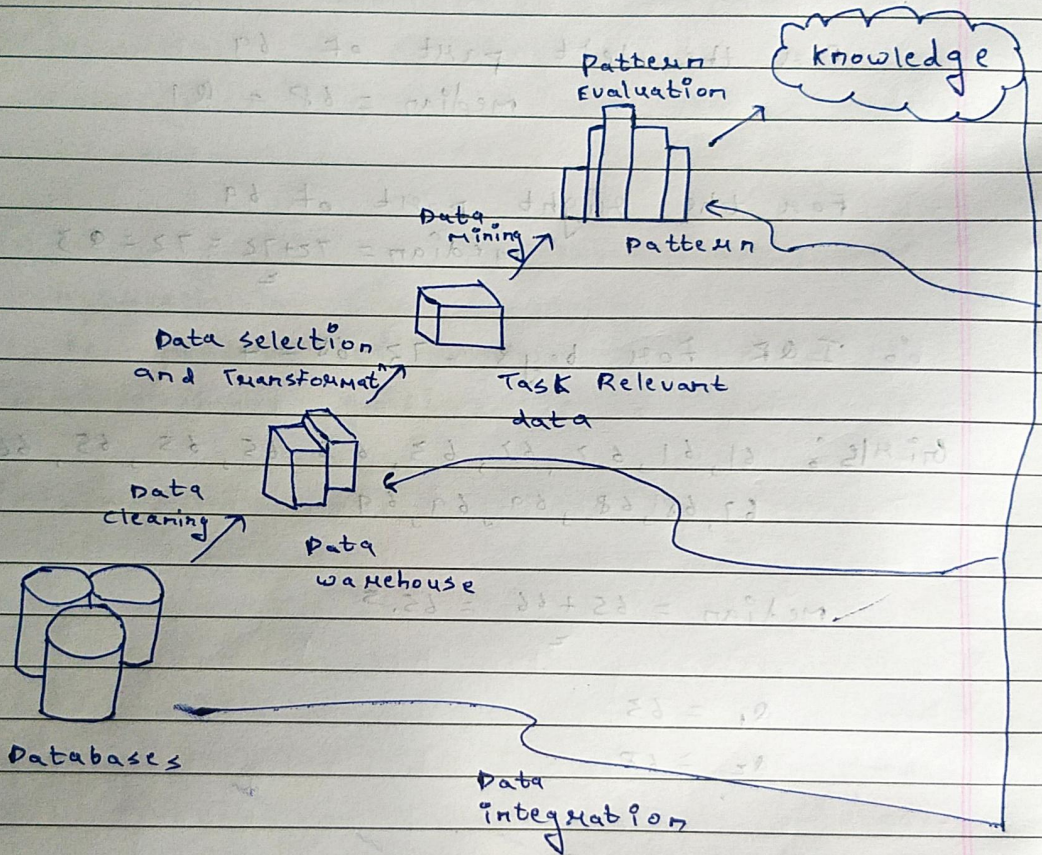 Knowledge
Pattern
Evaluation
Data
Mining
Pattern
Data selection
and Transformatⁿ
Task Relevant
data
Data
cleaning
Data
warehouse
Databases
Data
integration